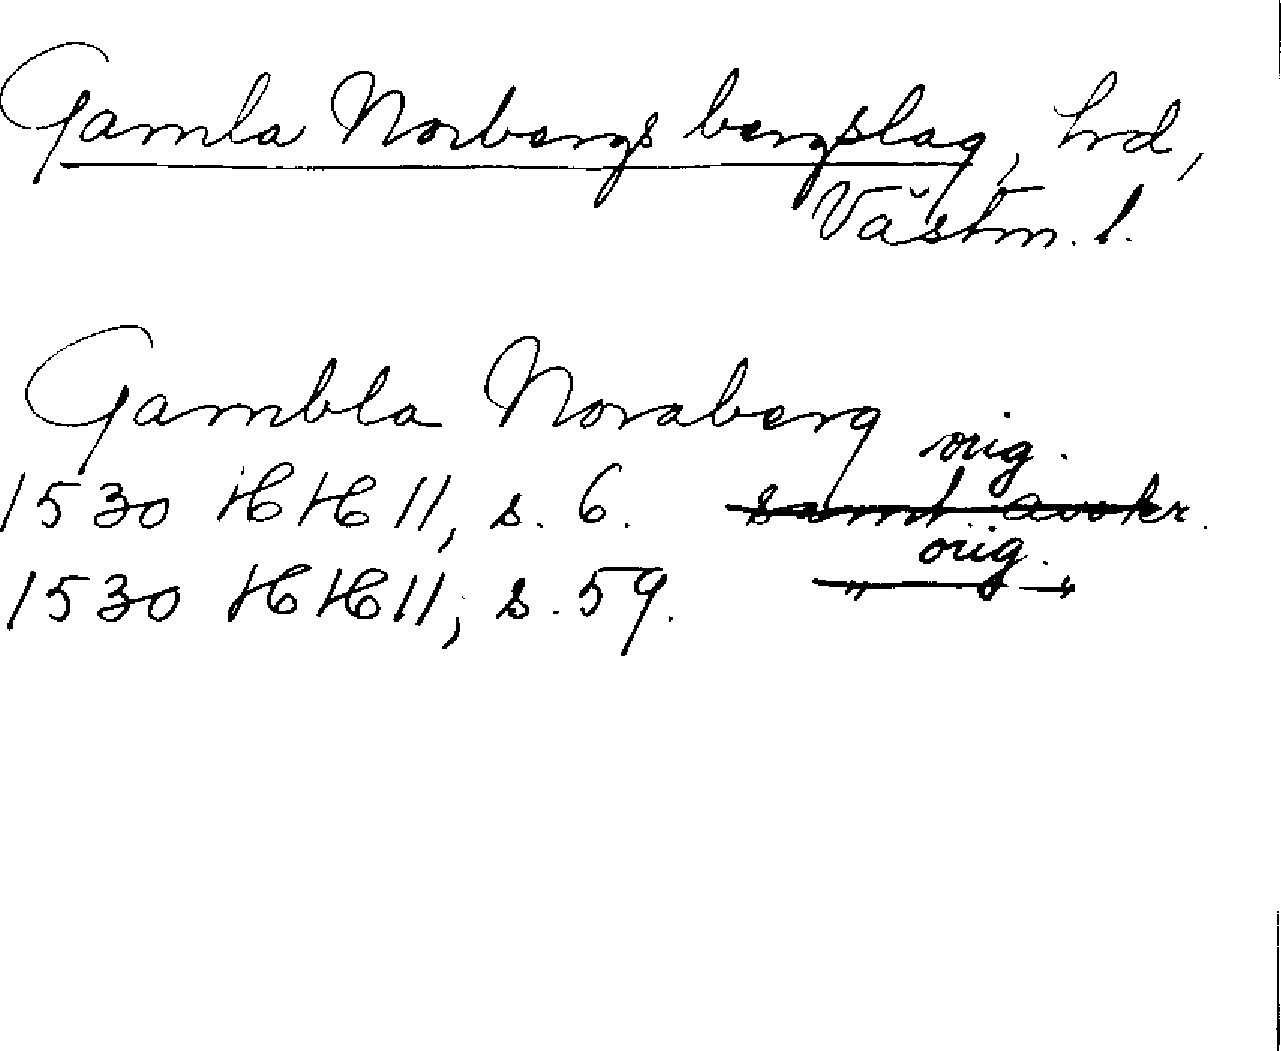 Gamla Norbergs bergslag, hrd,
Västm. l.
Gambla Noraberg
orig.
1530 HH 11, s. 6. samt avskr.
orig.
1530 HH 11, s. 59. —„—